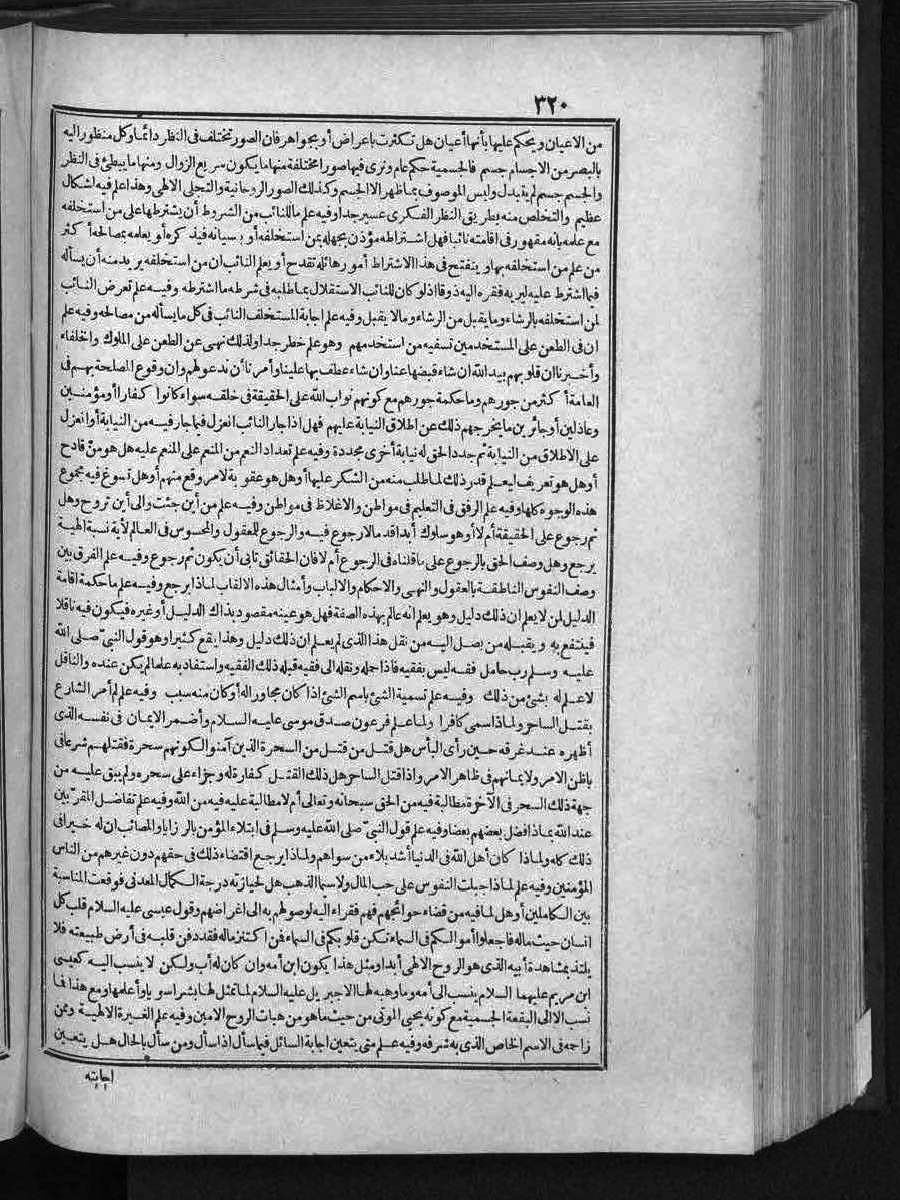 ٣٢٠
من الاعيان ويحكم عليها بأنها أعيان هل تكثرت باعراض أو بجواهر فان الصور تختلف فى النظر دائما وكل منظور اليه
بالبصر من الاجسام جسم فالجسمية حكم عام ونرى فيها صورا مختلفة منها ما يكون سريع الزوال ومنها ما يبطئ فى النظر
والجسم جسم لم يتبدل وليس الموصوف بما ظهر الا الجسم وكذلك الصور الروحانية والتجلى الالهى وهذا علم فيه اشكال
عظيم والتخلص منه بطريق النظر الفكرى عسير جدا وفيه علم ما للنائب من الشروط أن يشترطها على من استخلفه
مع علمه بانه مقهور فى اقامته نائبا فهل اشتراطه مؤذن بجهله بمن استخلفه أو بنسيانه فيذكره أو يعلمه بمصالحه أكثر
من علم من استخلفه بها وينفتح فى هذا الاشتراط أمور هائلة تقدح أو يعلم النائب ان من استخلفه يريد منه أن يسأله
فيما اشترط عليه ليريه فقره اليه ذوقا اذ لو كان للنائب الاستقلال بما طلبه فى شرطه ما اشترطه وفيه علم تعرض النائب
لمن استخلفه بالرشاء وما يقبل من الرشاء وما لا يقبل وفيه علم اجابة المستخلف النائب فى كل ما يسأله من مصالحه وفيه علم
ان فى الطعن على المستخدمين تسفيه من استخدمهم وهو علم خطر جدا ولذلك نهى عن الطعن على الملوك والخلفاء
وأخبرنا ان قلوبهم بيد الله ان شاء قبضها عنا وان شاء عطف بها علينا وأمرنا أن ندعو لهم وان وقوع المصلحة بهم فى
العامة أكثر من جورهم وما حكمة جورهم مع كونهم نواب الله على الحقيقة فى خلقه سواء كانوا كفارا أو مؤمنين
وعادلين أو جائرين ما يخرجهم ذلك عن اطلاق النيابة عليهم فهل اذا جار النائب انعزل فيما جار فيه من النيابة أو انعزل
على الاطلاق من النيابة ثم جدد الحق له نيابة أخرى مجددة وفيه علم تعداد النعم من المنعم على المنعم عليه هل هو منّ قادح
أو هل هو تعريف ليعلم قدر ذلك لما طلب منه من الشكر عليها أو هل هو عقوبة لامر وقع منهم أو هل تسوغ فيه مجموع
هذه الوجوه كلها وفيه علم الرفق فى التعليم فى مواطن والاغلاظ فى مواطن وفيه علم من أين جئت والى أين تروح وهل
ثم رجوع على الحقيقة أم لا أو هو سلوك أبدا قدما لا رجوع فيه والرجوع للمعقول والمحسوس فى العالم لأية نسبة الهية
يرجع وهل وصف الحق بالرجوع على ما قلناه فى الرجوع أم لا فان الحقائق تابى أن يكون ثم رجوع وفيه علم الفرق بين
وصف النفوس الناطقة بالعقول والنهى والاحكام والالباب وأمثال هذه الالقاب لماذا يرجع وفيه علم ما حكمة اقامة
الدليل لمن لا يعلم ان ذلك دليل وهو يعلم انه عالم بهذه الصفة فهل هو عينه مقصود بذاك الدليل أو غيره فيكون فيه ناقلا
فينتفع به ويقبله من يصل اليه من نقل هذا الذى لم يعلم ان ذلك دليل وهذا يقع كثيرا وهو قول النبىّ صلى الله
عليه وسلم رب حامل فقه ليس بفقيه فاذا حمله ونقله الى فقيه قبله ذلك الفقيه واستفاد به علما لم يكن عنده والناقل
لا علم له بشئ من ذلك وفيه علم تسمية الشئ باسم الشئ اذا كان مجاورا له أو كان منه سبب وفيه علم لم أمر الشارع
بقتل الساحر ولماذا سمى كافرا ولما علم فرعون صدق موسى عليه السلام وأضمر الايمان فى نفسه الذى
أظهره عند غرقه حين رأى البأس هل قتل من قتل من السحرة الذين آمنوا لكونهم سحرة فقتلهم شرعا فى
باطن الامر ولايمانهم فى ظاهر الامر واذا قتل الساحر هل ذلك القتل كفارة له وجزاء على سحره ولم يبق عليه من
جهة ذلك السحر فى الآخرة مطالبة فيه من الحق سبحانه وتعالى أم لا مطالبة عليه فيه من الله وفيه علم تفاضل المقرّبين
عند الله بماذا فضل بعضهم بعضا وفيه علم قول النبىّ صلى الله عليه وسلم فى ابتلاء المؤمن بالرزايا والمصائب ان له خيرا فى
ذلك كله ولماذا كان أهل الله فى الدنيا أشد بلاء من سواهم ولماذا يرجع اقتضاء ذلك فى حقهم دون غيرهم من الناس
المؤمنين وفيه علم لماذا جبلت النفوس على حب المال ولاسيما الذهب هل لحيازته درجة الكمال المعدنى فوقعت المناسبة
بين الكاملين أو هل لما فيه من قضاء حوائجهم فهم فقراء اليه لوصولهم به الى اغراضهم وقول عيسى عليه السلام قلب كل
انسان حيث ماله فاجعلوا أموالكم فى السماء تكن قلوبكم فى السماء فن اكتنز ماله فقد دفن قلبه فى أرض طبيعته فلا
يلتذ بمشاهدة أبيه الذى هو الروح الالهى أبدا ومثل هذا يكون ابن أمه وان كان له أب ولكن لا ينسب اليه كعيسى
ابن مريم عليهما السلام ينسب الى أمه وما وهبه لها الا جبريل عليه السلام لما تمثل لها بشرا سويا وأعلمها ومع هذا فما
نسب الا الى البقعة الجسمية مع كونه يحيى الموتى من حيث ما هو من هبات الروح الامين وفيه علم الغيرة الالهية وممن
زاحمه فى الاسم الخاص الذى به شرفه وفيه علم متى يتعين اجابة السائل فيما سأل اذا سأل ومن سأل بالحال هل يتعين
اجابته